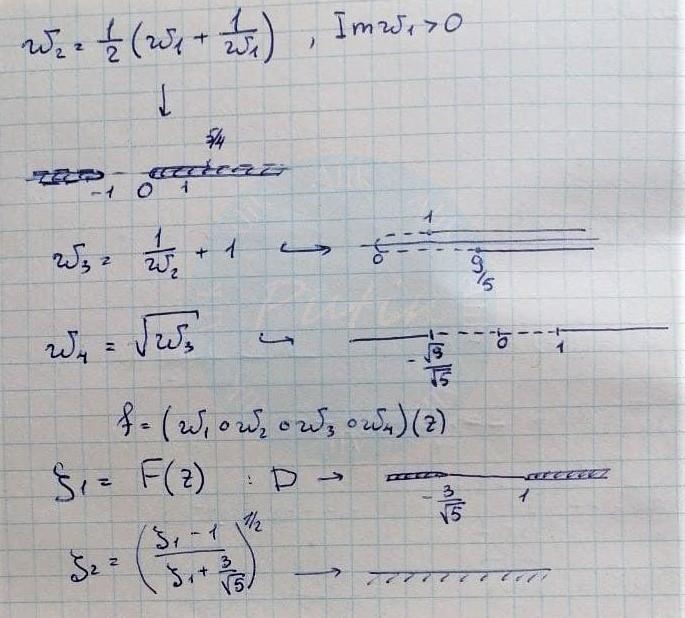 w₂ = 1/2 (w₁ + 1/w₁) , Im w₁ > 0
↓
5/4
-1 0 1
w₃ = 1/w₂ + 1 ↪ 1
0 9/5
w₄ = √w₃ ↪ -√9/√5 0 1
f = (w₁ ∘ w₂ ∘ w₃ ∘ w₄)(z)
ζ₁ = F(z) : D → -3/√5 1
ζ₂ = ((ζ₁ - 1)/(ζ₁ + 3/√5))^1/2 →